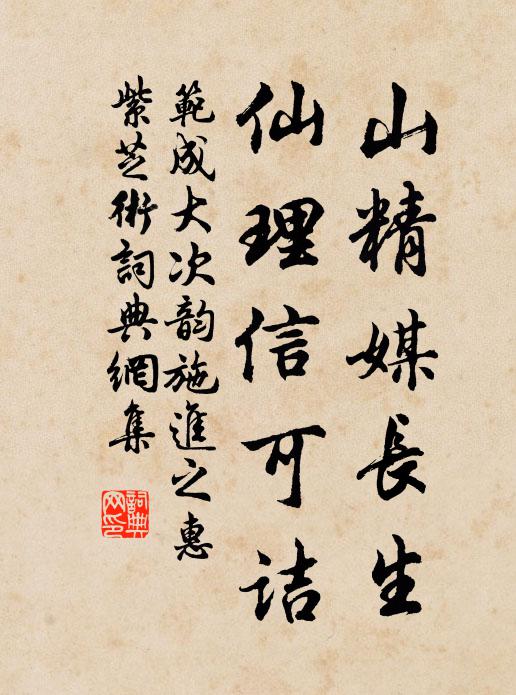 山精媒長生
仙理信可詰
範成大次韵施進之惠
紫芝術詞典網集
詞典
网印